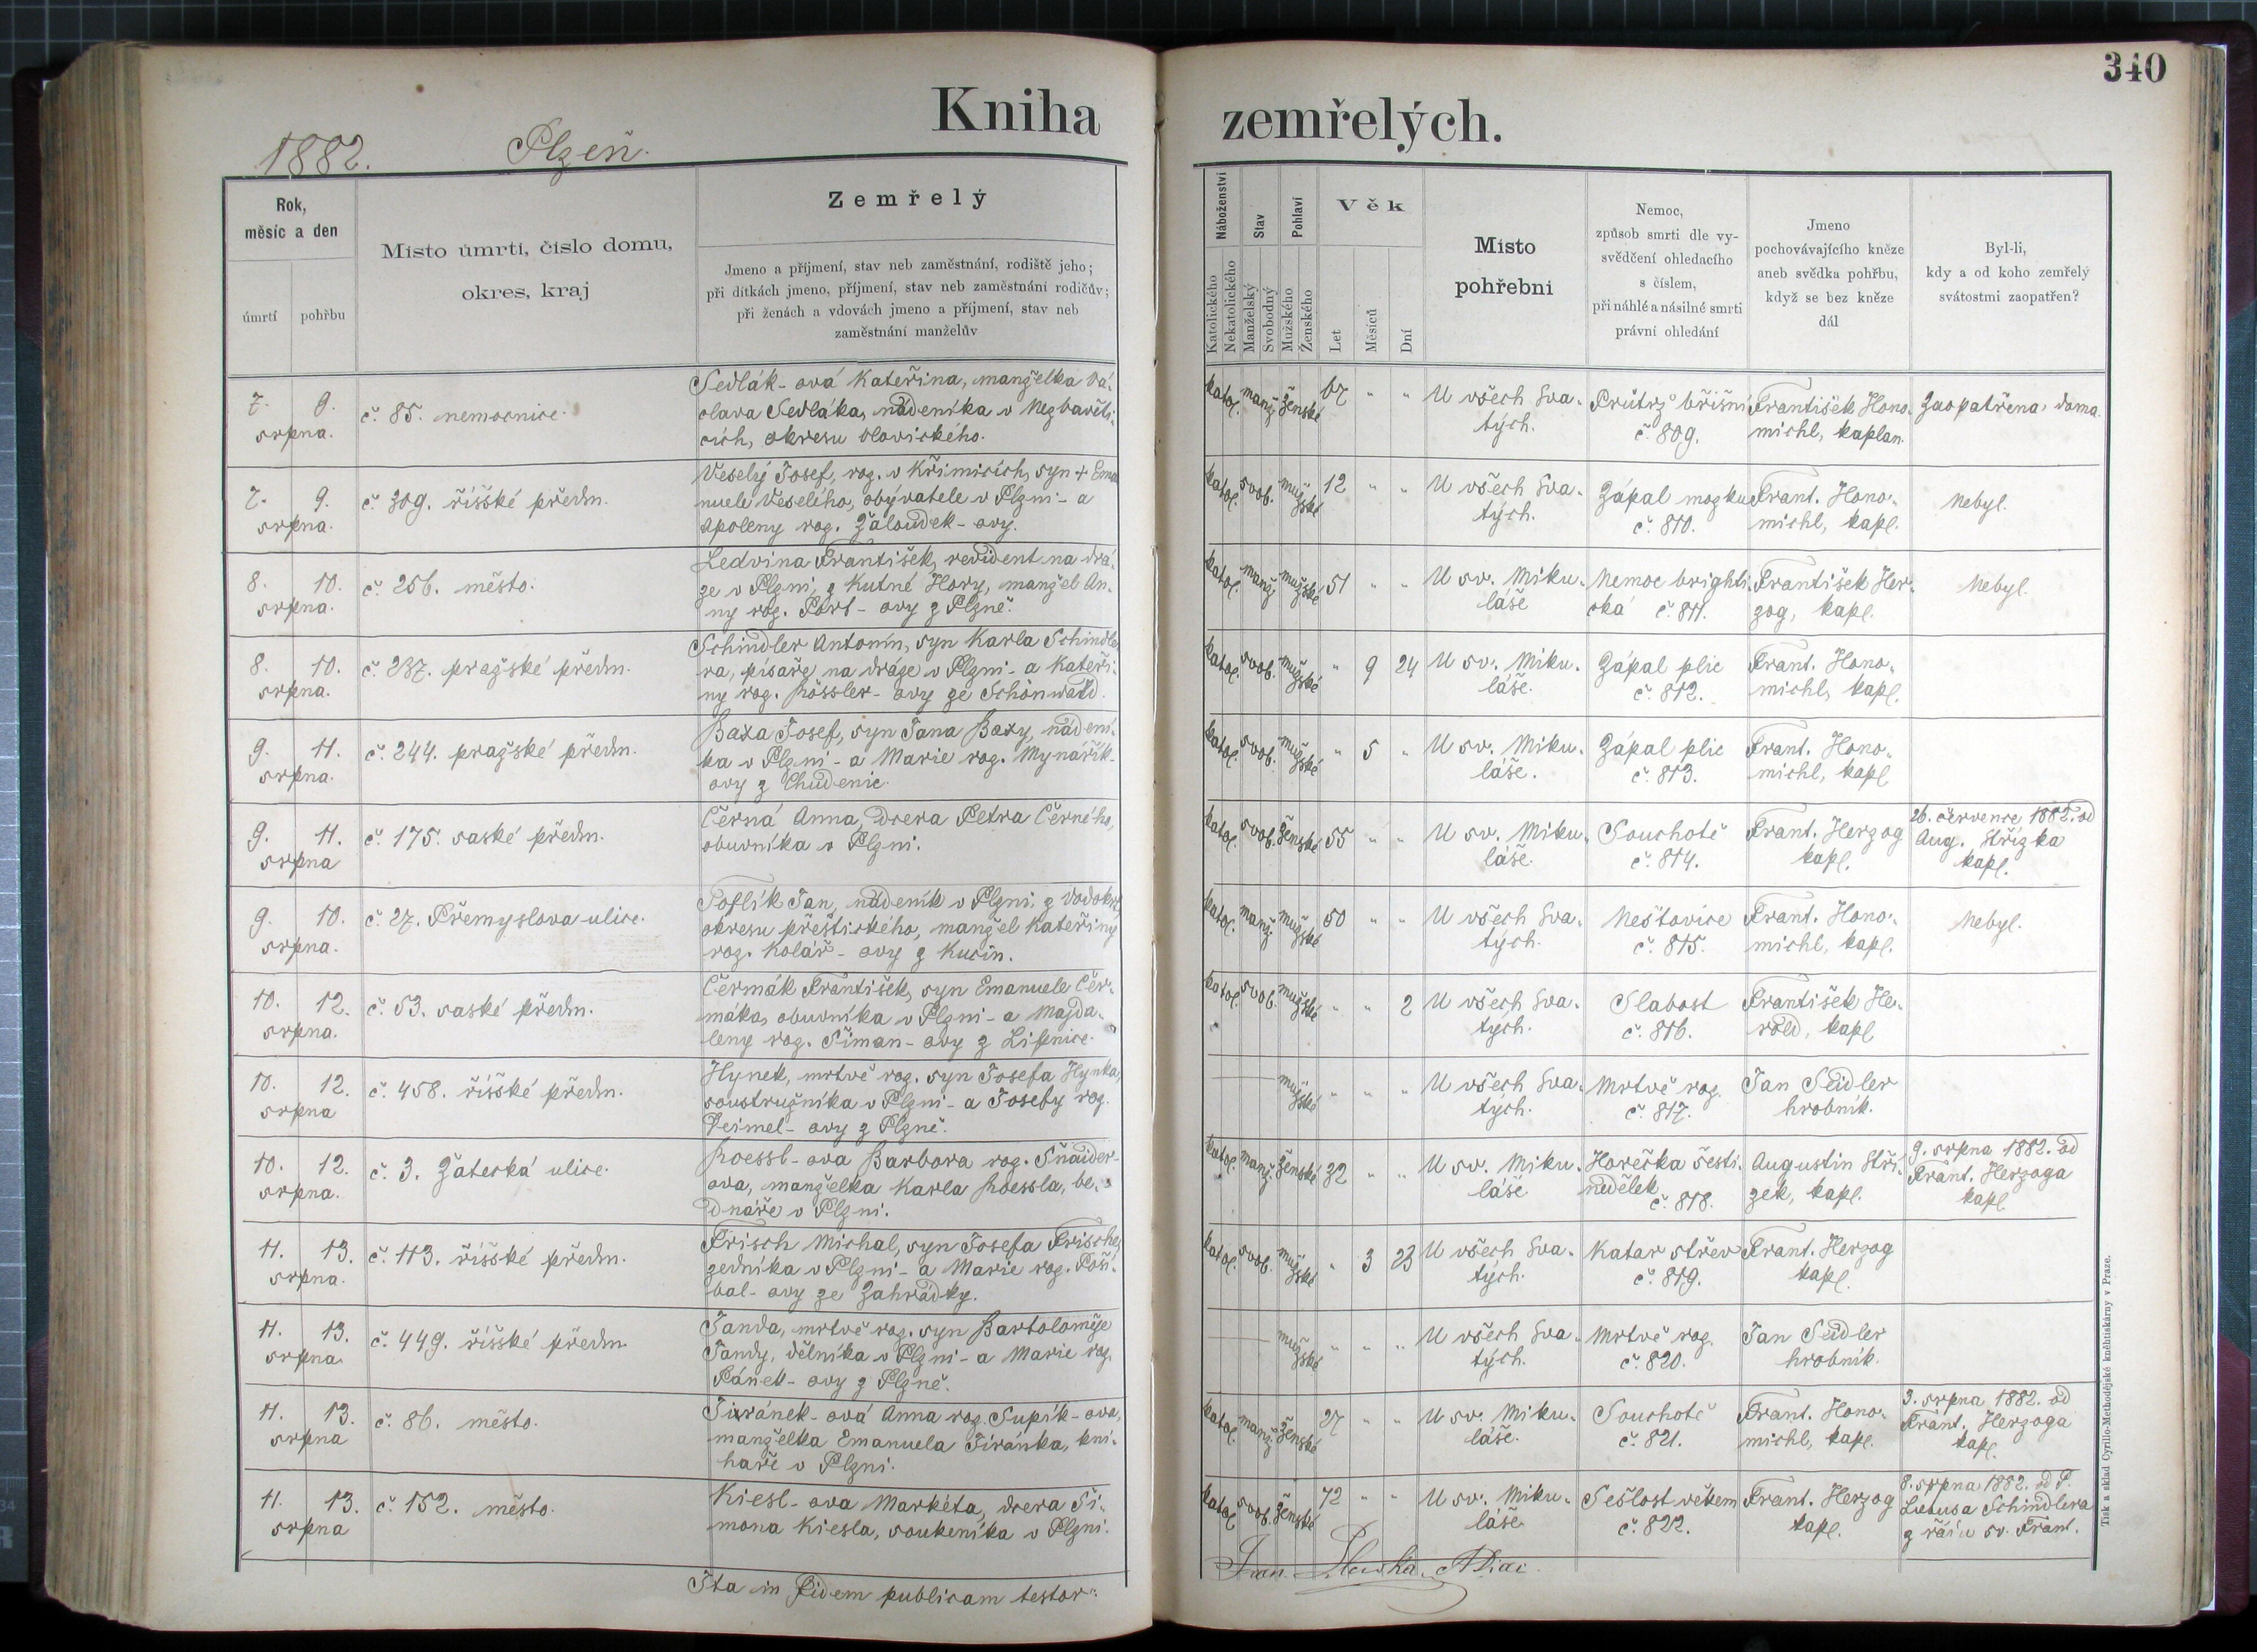 340
Kniha zemřelých.
1882. Plzeň.
Rok,
měsíc a den
úmrtí
pohřbu
Místo úmrtí, číslo domu,
okres, kraj
Zemřelý
Jmeno a příjmení, stav neb zaměstnání, rodiště jeho;
při dítkách jmeno, příjmení, stav neb zaměstnání rodičův;
při ženách a vdovách jmeno a příjmení, stav neb
zaměstnání manželův
Náboženství
Katolického
Nekatolického
Stav
Manželský
Svobodný
Pohlaví
Mužského
Ženského
Věk
Let
Měsíců
Dní
Místo
pohřební
Nemoc,
způsob smrti dle vy-
svědčení ohledacího
s číslem,
při náhlé a násilné smrti
právní ohledání
Jmeno
pochovávajícího kněze
aneb svědka pohřbu,
když se bez kněze
dál
Byl-li,
kdy a od koho zemřelý
svátostmi zaopatřen?
7. 9.
srpna.
č. 85. nemocnice.
Sedlák-ová Kateřina, manželka Vá-
clava Sedláka, nádeníka v Nezbavěti-
cích, okresu blovického.
katol. manž. ženské 67 " "
U všech Sva-
tých.
Průtrž břišní
č. 809.
František Hono-
michl, kaplan.
Zaopatřena doma.
7. 9.
srpna.
č. 309. říšské předm.
Veselý Josef, roz. v Křimicích, syn + Ema-
nuele Veselého, obývatele v Plzni - a
Apoleny roz. Žaloudek-ovy.
katol. svob. mužské 12 " "
U všech Sva-
tých.
Zápal mozku
č. 810.
Frant. Hono-
michl, kapl.
Nebyl.
8. 10.
srpna.
č. 256. město.
Ledvina František, revident na drá-
ze v Plzni, z Kutné Hory, manžel An-
ny roz. -ovy z Plzně.
katol. manž. mužské 51 " "
U sv. Miku-
láše
Nemoc brighti-
cká č. 811.
František Her-
zog, kapl.
Nebyl.
8. 10.
srpna.
č. 237. pražské předm.
Schindler Antonín, syn Karla Schindle-
ra, písaře na dráze v Plzni - a Kateři-
ny roz. Rössler-ovy ze Schönwald.
katol. svob. mužské " 9 24
U sv. Miku-
láše.
Zápal plic
č. 812.
Frant. Hono-
michl, kapl.
9. 11.
srpna.
č. 244. pražské předm.
Baxa Josef, syn Jana Baxy, nádení-
ka v Plzni - a Marie roz. Mynářík-
ovy z Chudenic.
katol. svob. mužské " 5 "
U sv. Miku-
láše.
Zápal plic
č. 813.
Frant. Hono-
michl, kapl.
9. 11.
srpna
č. 175. saské předm.
Černá Anna, dcera Petra Černého,
obuvníka v Plzni.
katol. svob. ženské 55 " "
U sv. Miku-
láše.
Souchotě
č. 814.
Frant. Herzog
kapl.
26. července 1882. od
Aug. Střízka
kapl.
9. 10.
srpna.
č. 27. Přemyslova ulice.
Toflík Jan, nádeník v Plzni, z Vodokrt,
okresu přeštického, manžel Kateřiny
roz. Kolář-ovy z Kucín.
katol. manž. mužské 50 " "
U všech Sva-
tých.
Neštovice
č. 815.
Frant. Hono-
michl, kapl.
Nebyl.
10. 12.
srpna.
č. 53. saské předm.
Čermák František, syn Emanuele Čer-
máka, obuvníka v Plzni - a Majda-
leny roz. Šiman-ovy z Lipnice.
katol. svob. mužské " " 2
U všech Sva-
tých.
Slabost
č. 816.
František He-
rold, kapl.
10. 12.
srpna
č. 458. říšské předm.
Hynek, mrtvě roz. syn Josefa Hynka,
soustružníka v Plzni - a Josefy roz.
-ovy z Plzně.
mužské " " "
U všech Sva-
tých.
Mrtvě roz.
č. 817.
Jan Seidler
hrobník.
10. 12.
srpna.
č. 3. Žatecká ulice.
Roessl-ova Barbora roz. Šnaider-
ova, manželka Karla Roessla, be-
dnáře v Plzni.
katol. manž. ženské 32 " "
U sv. Miku-
láše
Horečka šesti-
nedělek
č. 818.
Augustin Stří-
zek, kapl.
9. srpna 1882. od
Frant. Herzoga
kapl.
11. 13.
srpna.
č. 113. říšské předm.
Frisch Michal, syn Josefa Frische,
zedníka v Plzni - a Marie roz. Poší-
val-ovy ze Zahrádky.
katol. svob. mužské " 3 23
U všech Sva-
tých.
Katar střev
č. 819.
Frant. Herzog
kapl.
11. 13.
srpna.
č. 449. říšské předm.
Janda, mrtvě roz. syn Bartoloměje
Jandy, dělníka v Plzni - a Marie roz.
Pánek-ovy z Plzně.
mužské " " "
U všech Sva-
tých.
Mrtvě roz.
č. 820.
Jan Seidler
hrobník.
11. 13.
srpna
č. 86. město.
Jiránek-ová Anna roz. Supík-ova,
manželka Emanuela Jiránka, kni-
haře v Plzni.
katol. manž. ženské 27 " "
U sv. Miku-
láše.
Souchotě
č. 821.
Frant. Hono-
michl, kapl.
3. srpna 1882. od
Frant. Herzoga
kapl.
11. 13.
srpna
č. 152. město.
Kiesl-ova Markéta, dcera Ši-
mona Kiesla, soukeníka v Plzni.
katol. svob. ženské 72 " "
U sv. Miku-
láše
Sešlost věkem
č. 822.
Frant. Herzog
kapl.
8. srpna 1882. od P.
Schindlera
z řádu sv. Frant.
Ita in fidem publicam testor:
Tisk a sklad Cyrillo-Methodějské kněhtiskárny v Praze.